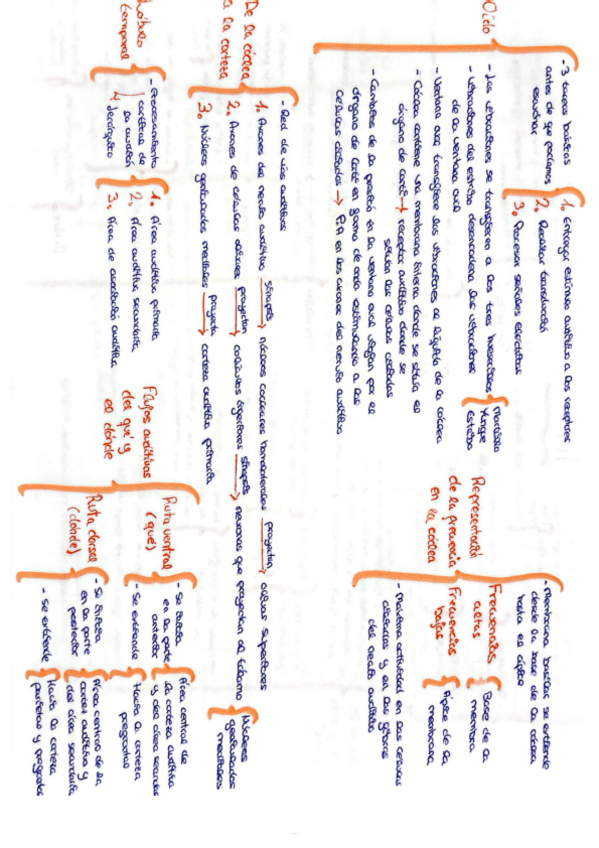 Oído
- 3 tareas básicas
antes de que podamos
escuchar
1. Entregar estímulo auditivo a los receptores
2. Realizar transducción
3. Procesar señales eléctricas
- Las vibraciones se transfieren a los tres huesecillos
Martillo
Yunque
Estribo
- Vibraciones del estribo desencadena las vibraciones
de la ventana oval
- Ventana oval transfiere las vibraciones al líquido de la cóclea
- Cóclea contiene una membrana interna donde se sitúa el
órgano de corti → receptor auditivo donde se
sitúan las células ciliadas
- Cambios de la presión en la ventana oval viajan por el
órgano de corti en forma de onda estimulando a las
células ciliadas → P.A en los axones del nervio auditivo
Representación
de la frecuencia
en la cóclea
- Membrana basilar se extiende
desde la base de la cóclea
hasta el ápice
Frecuencias
altas
Base de la
membrana
Frecuencias
bajas
Ápice de la
membrana
- Máxima actividad en las células
ciliares y en las fibras
del nervio auditivo
De la cóclea
a la corteza
- Red de vías auditivas
1. Axones del nervio auditivo sinapsis → núcleos cocleares homolaterales proyectan → olivas superiores
2. Axones de células olivares proyectan → colículos inferiores sinapsis → neuronas que proyectan al tálamo
Núcleos
geniculados
mediales
3. Núcleos geniculados mediales proyecta → corteza auditiva primaria
Lóbulo
temporal
- Procesamiento
cortical de
la audición
y jerárquico
1. Área auditiva primaria
2. Área auditiva secundaria
3. Área de asociación auditiva
Flujos auditivos
del qué y
el dónde
Ruta ventral
(qué)
- Se sitúa
en la parte
anterior
Área central de
la corteza auditiva
y del área secundaria
- Se extiende
Hacia la corteza
prefrontal
Ruta dorsal
(dónde)
- Se sitúa
en la parte
posterior
Área central de la
corteza auditiva y
del área secundaria
- Se extiende
Hacia la corteza
parietal y prefrontal